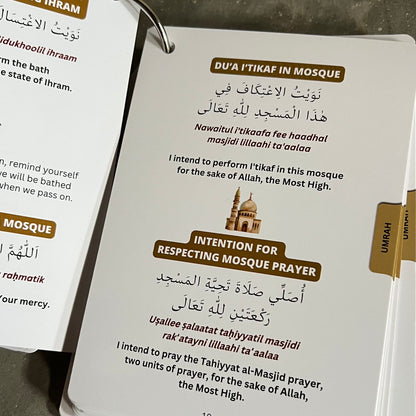 IHRAM
نَوَيْتُ الاِغْتِسَالَ
idukhoolil ihraam
rm the bath
e state of Ihram.
n, remind yourself
e will be bathed
when we pass on.
MOSQUE
اَللّٰهُمَّ
raḥmatik
Your mercy.
DU'A I'TIKAF IN MOSQUE
نَوَيْتُ الاِعْتِكَافَ فِي
هٰذَا الْمَسْجِدِ لِلّٰهِ تَعَالَى
Nawaitul i'tikaafa fee haadhal
masjidi lillaahi ta'aalaa
I intend to perform I'tikaf in this mosque
for the sake of Allah, the Most High.
INTENTION FOR
RESPECTING MOSQUE PRAYER
أُصَلِّي صَلَاةَ تَحِيَّةِ الْمَسْجِدِ
رَكْعَتَيْنِ لِلّٰهِ تَعَالَى
Uṣallee ṣalaatat taḥiyyatil masjidi
rak'atayni lillaahi ta'aalaa
I intend to pray the Tahiyyat al-Masjid prayer,
two units of prayer, for the sake of Allah,
the Most High.
UMRAH